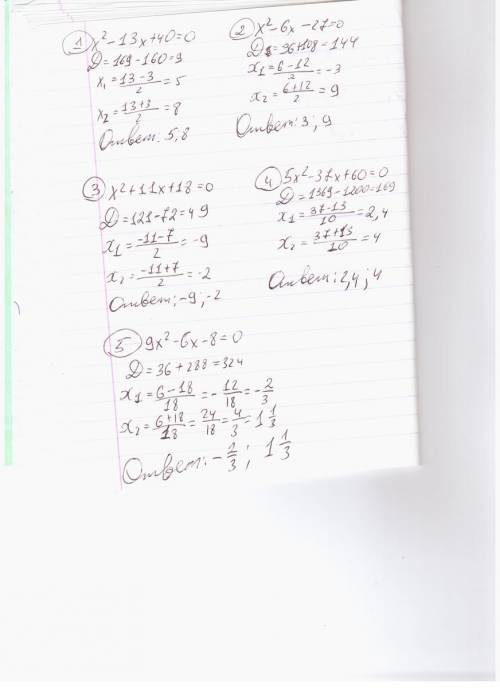 1 x²-13x+40=0
D=169-160=9
x₁=(13-3)/2=5
x₂=(13+3)/2=8
Ответ: 5,8
2 x²-6x-27=0
D=36+108=144
x₁=(6-12)/2=-3
x₂=(6+12)/2=9
Ответ: 3; 9
3 x²+11x+18=0
D=121-72=49
x₁=(-11-7)/2=-9
x₂=(-11+7)/2=-2
Ответ: -9; -2
4 5x²-37x+60=0
D=1369-1200=169
x₁=(37-13)/10=2,4
x₂=(37+13)/10=4
Ответ: 2,4; 4
5 9x²-6x-8=0
D=36+288=324
x₁=(6-18)/18=-12/18=-2/3
x₂=(6+18)/18=24/18=4/3=1 1/3
Ответ: -2/3; 1 1/3